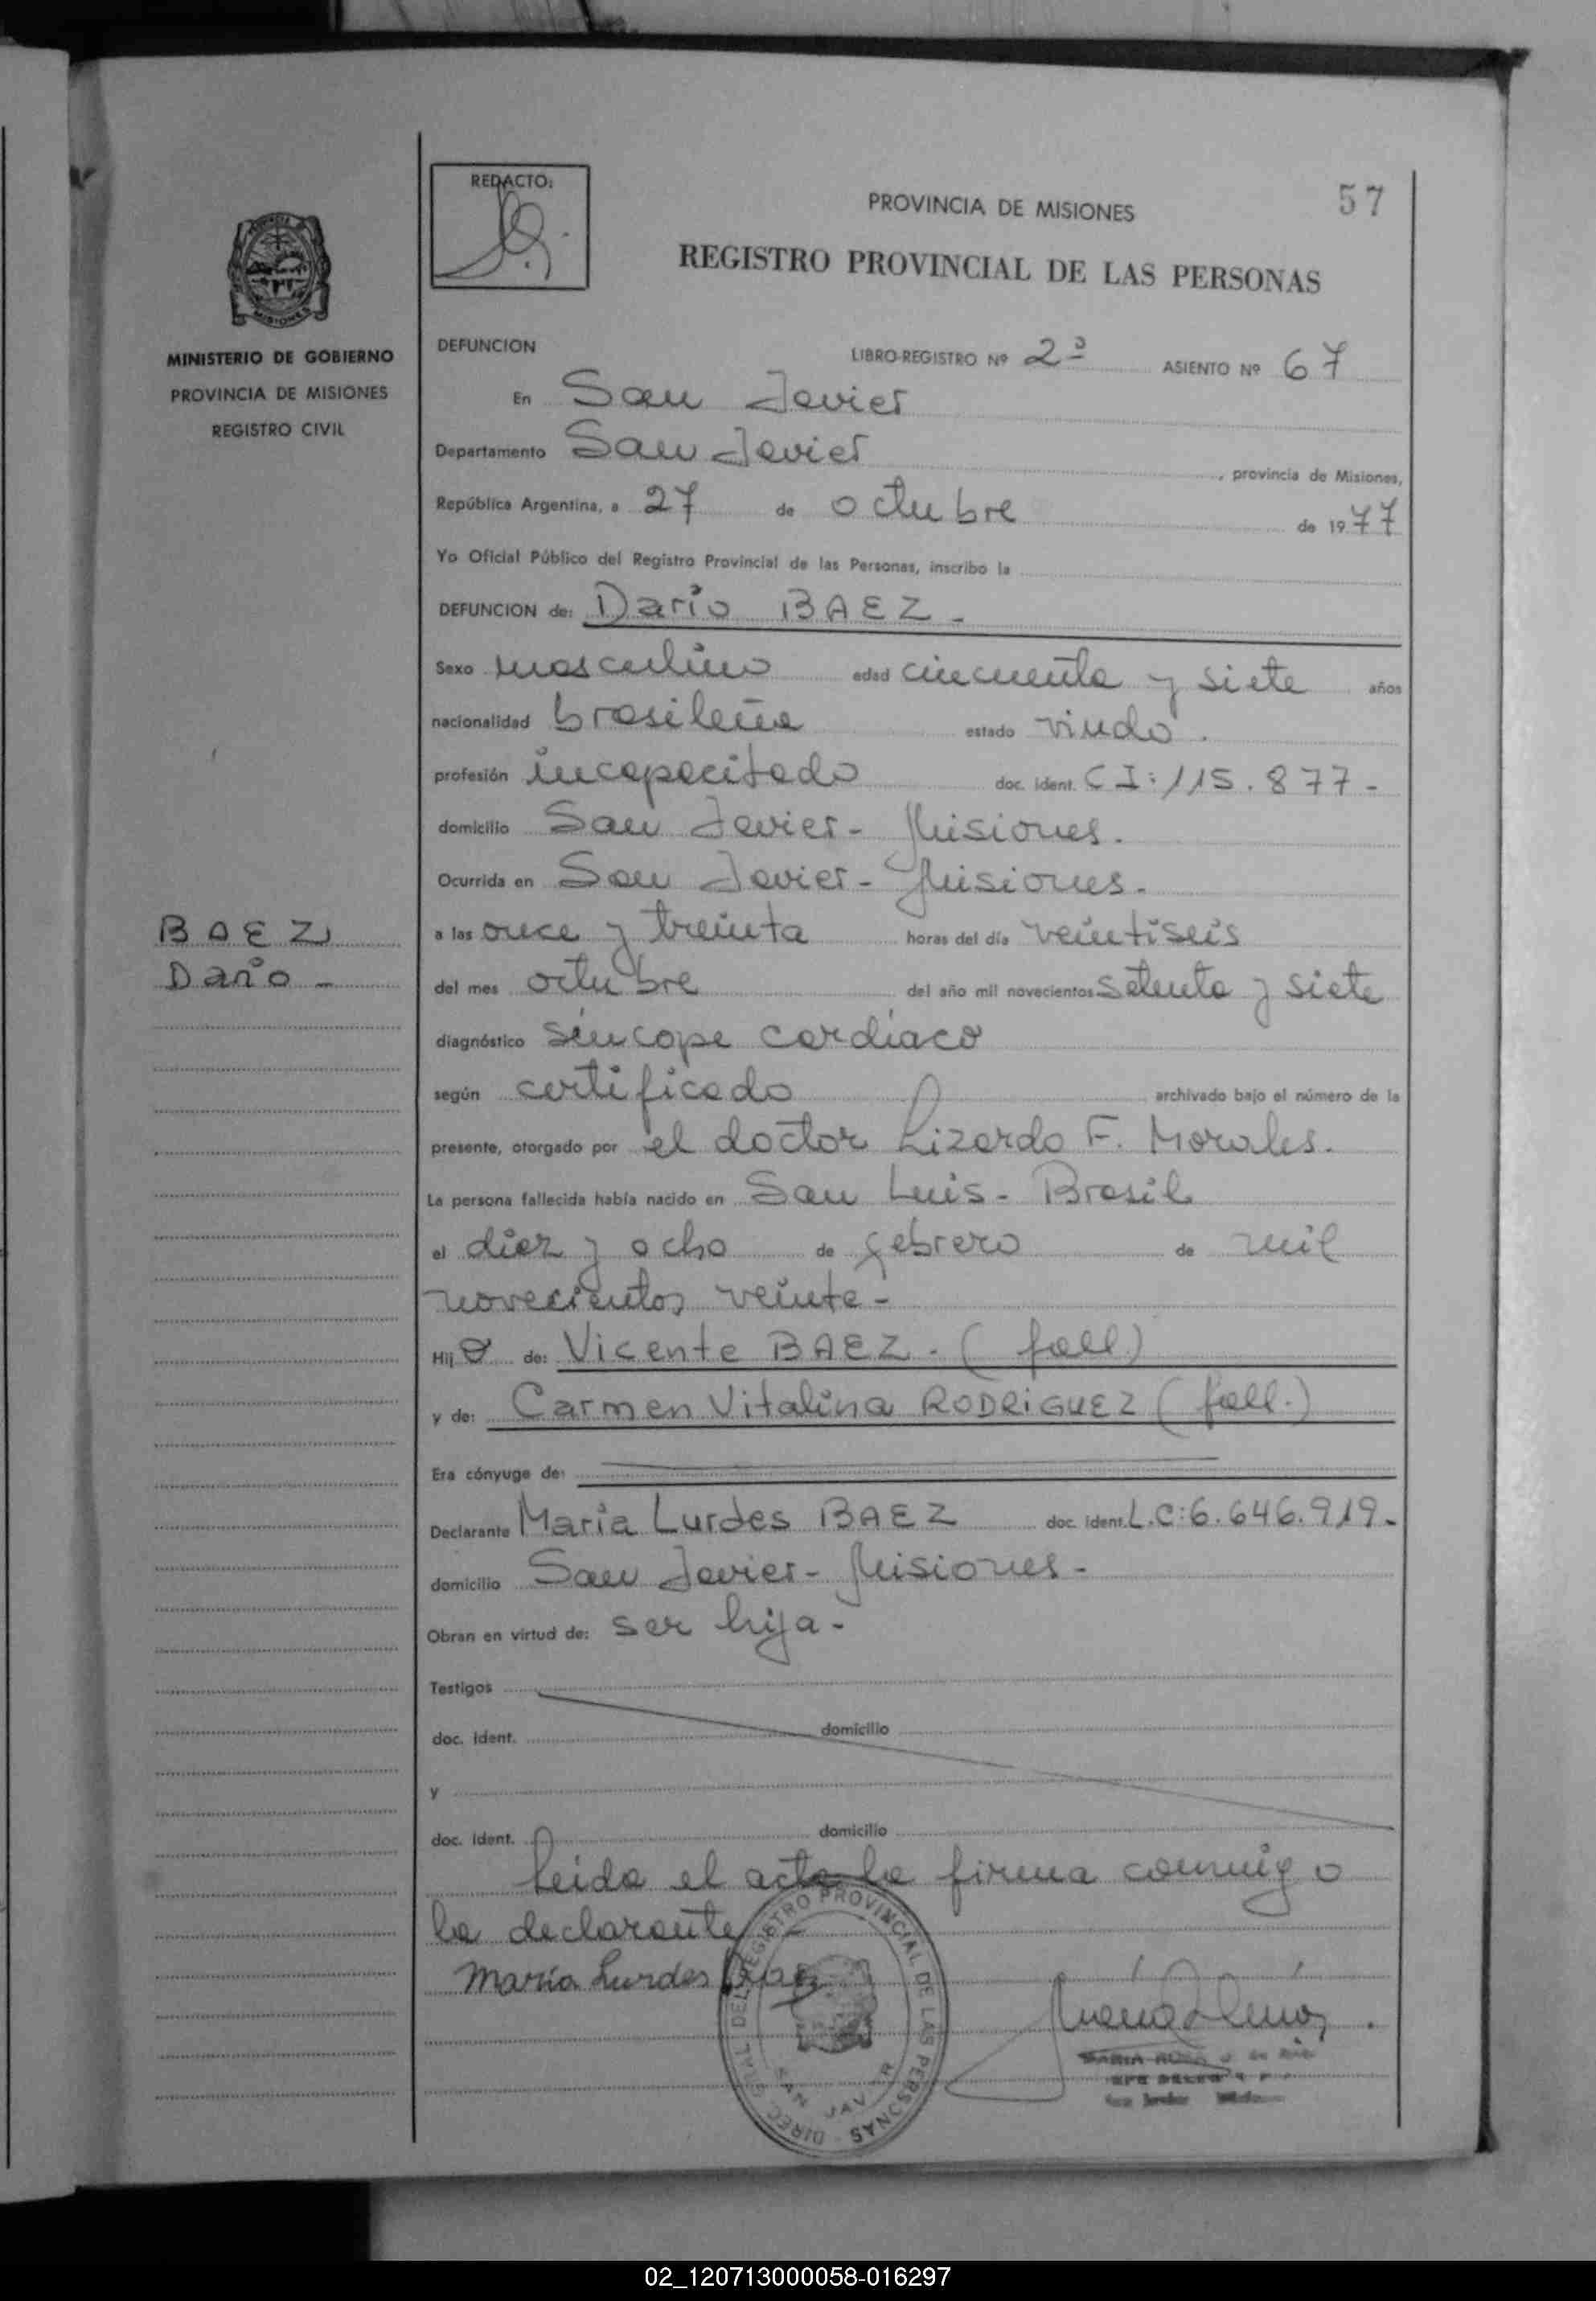 57
REDACTO:
PROVINCIA DE MISIONES
REGISTRO PROVINCIAL DE LAS PERSONAS
MISIONES
MINISTERIO DE GOBIERNO
PROVINCIA DE MISIONES
REGISTRO CIVIL
BAEZ
Darío -
DEFUNCION LIBRO-REGISTRO Nº 2º ASIENTO Nº 67
En San Javier
Departamento San Javier, provincia de Misiones,
República Argentina, a 27 de octubre de 1977
Yo Oficial Público del Registro Provincial de las Personas, inscribo la
DEFUNCION de: Darío BAEZ -
Sexo masculino edad cincuenta y siete años
nacionalidad brasileña estado viudo.
profesión incapacitado doc. ident. CI: 115.877-
domicilio San Javier - Misiones.
Ocurrida en San Javier - Misiones.
a las once y treinta horas del día veintiseis
del mes octubre del año mil novecientos setenta y siete
diagnóstico síncope cardíaco
según certificado archivado bajo el número de la
presente, otorgado por el doctor Lizardo F. Morales.
La persona fallecida había nacido en San Luis - Brasil
el diez y ocho de febrero de mil
novecientos veinte -
Hijo de: Vicente BAEZ - (fall)
y de: Carmen Vitalina RODRIGUEZ (fall.)
Era cónyuge de:
Declarante Maria Lurdes BAEZ doc. ident. L.C: 6.646.919-
domicilio San Javier - Misiones -
Obran en virtud de: ser hija -
Testigos
doc. ident. domicilio
y
doc. ident. domicilio
Leída el acta la firma conmigo
la declarante -
Maria Lurdes Baez
DIREC. GRAL. DEL REGISTRO PROVINCIAL DE LAS PERSONAS
SAN JAVIER
02_120713000058-016297